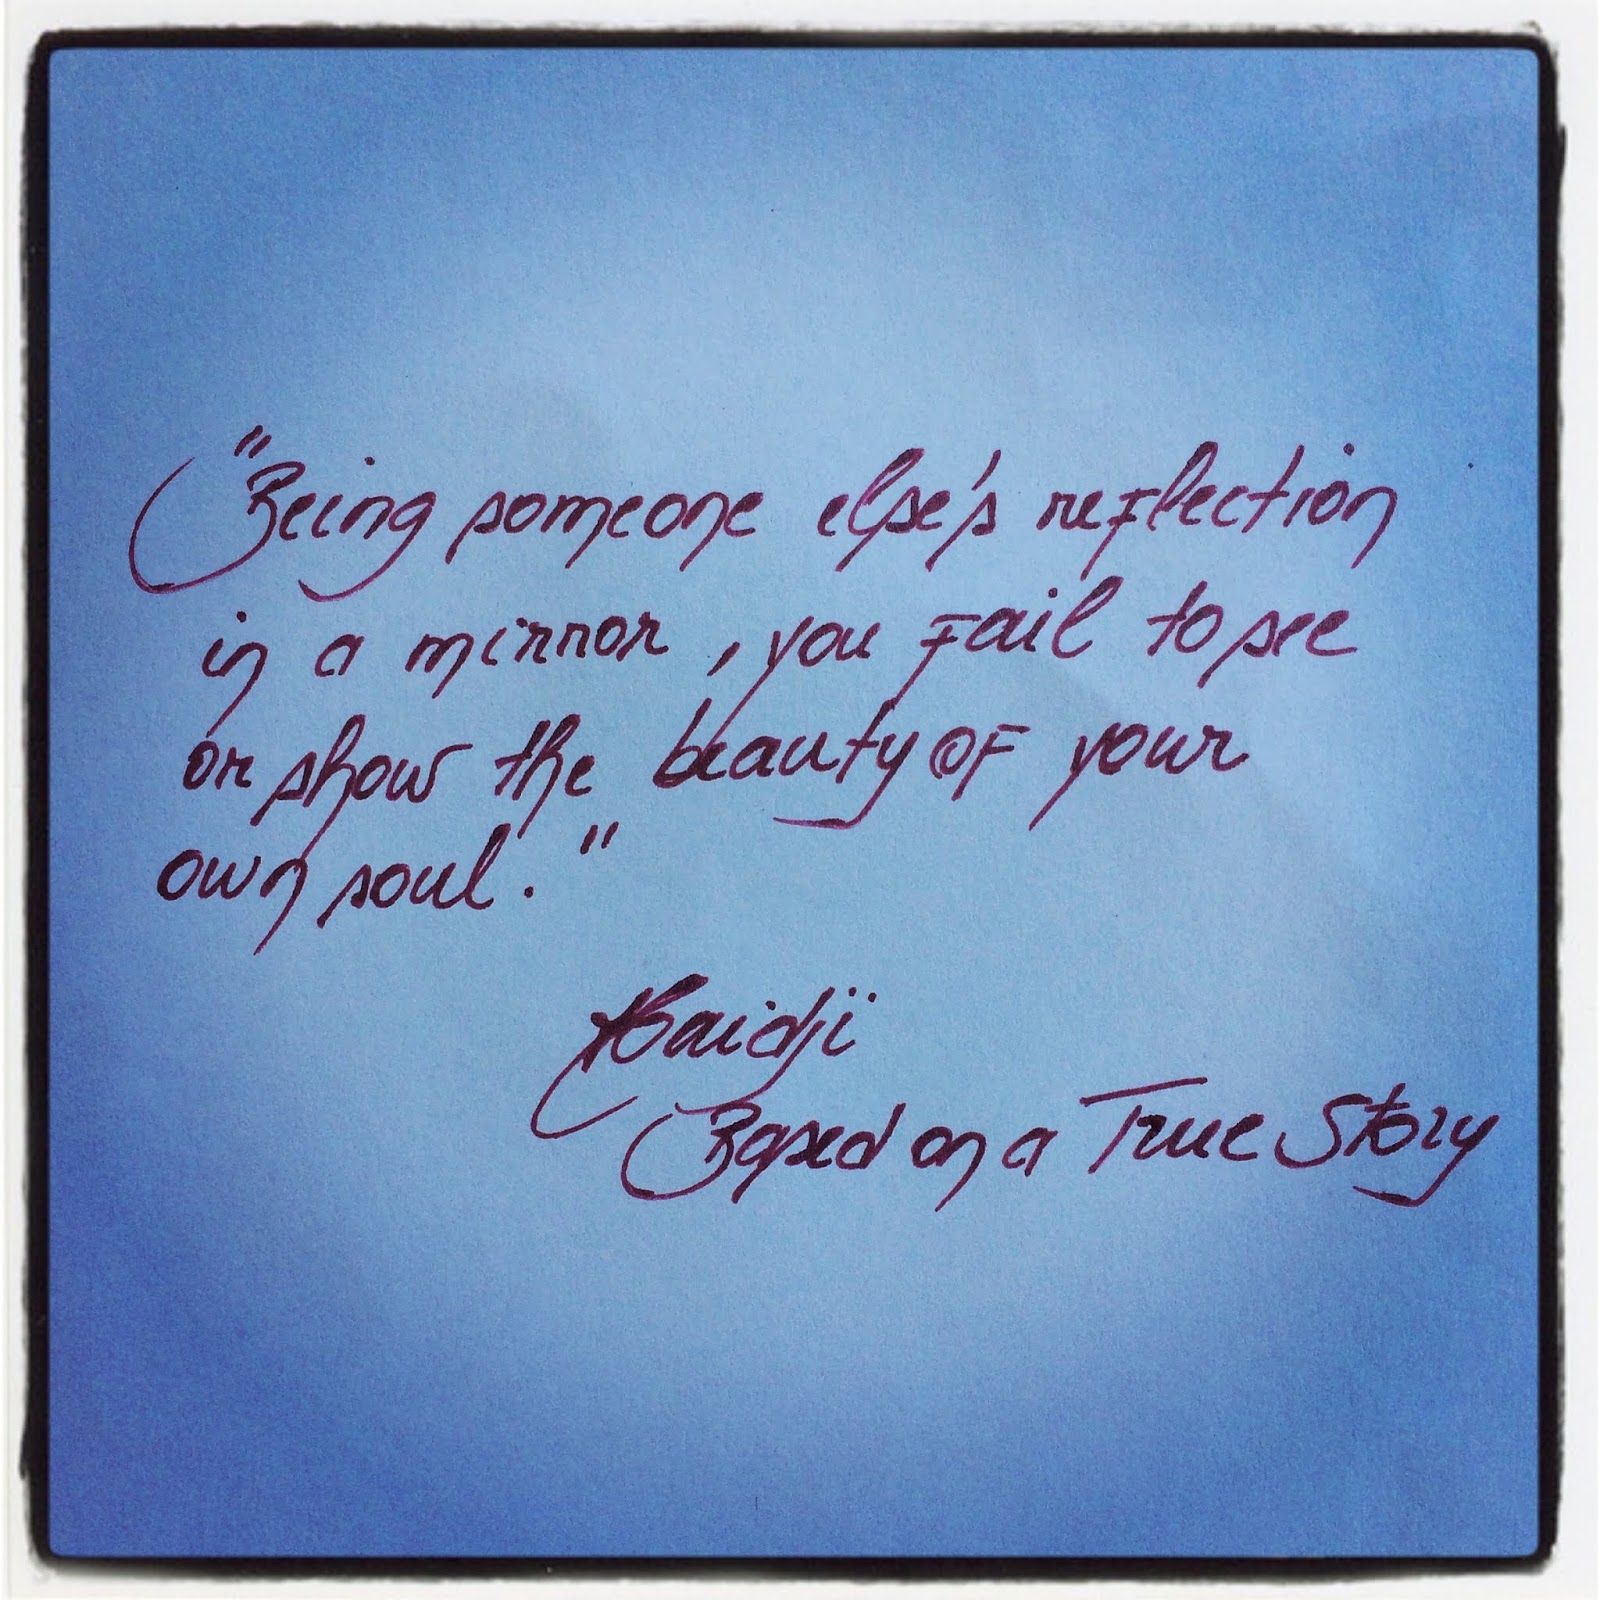 "Being someone else's reflection
in a mirror, you fail to see
or show the beauty of your
own soul."
Haidji
Based on a True Story